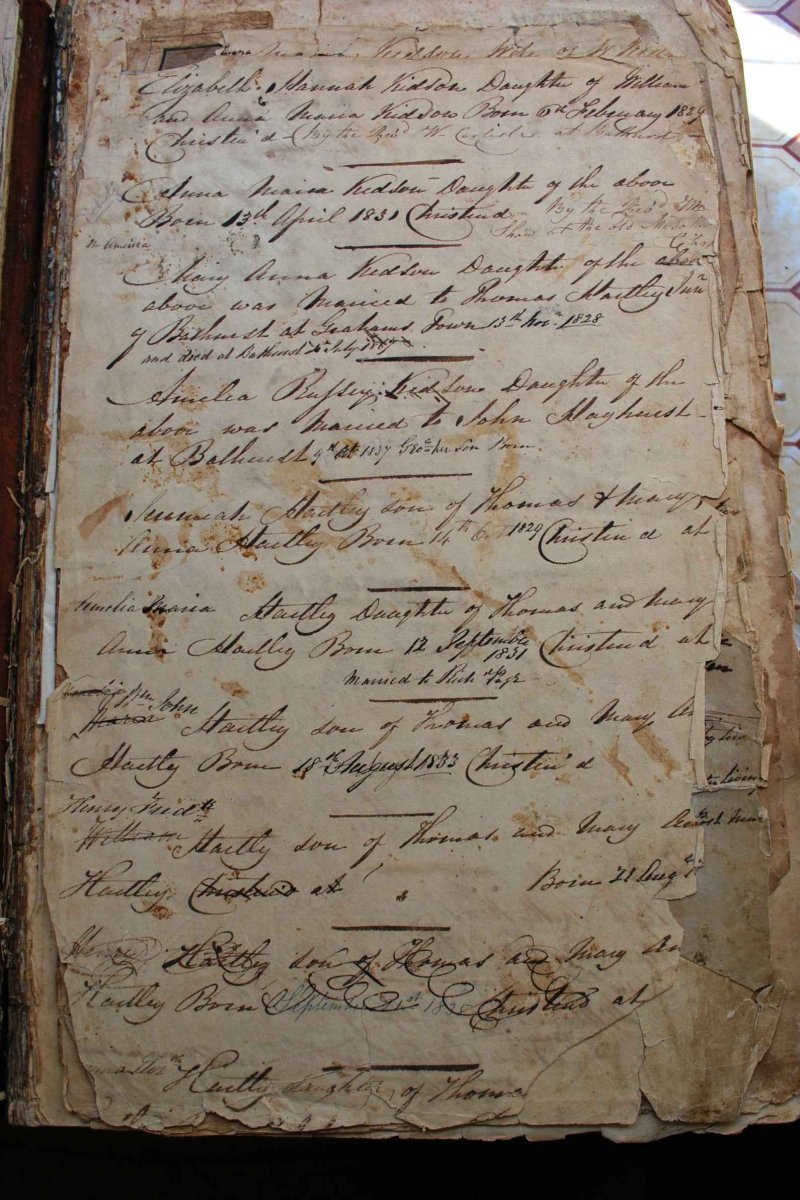 Maria Kidson Wife of W
Elizabeth Hannah Kidson Daughter of William
and Anna Maria Kidson Born 6th February 1829
Christen'd - By the Rev'd W. Carlisle at Bathurst
Anna Maria Kidson Daughter of the above
Born 13th April 1831 Christend - By the Rev'd
Shaw at the old
in America
Mary Anna Kidson Daughter of the
above was Married to Thomas Hartley Junr
of Bathurst at Grahams Town 13th Novr 1828
and died at Bathurst
Amelia Kidson Daughter of the
above was Married to John Hayhurst
at Bathurst 9th 1837 her son Born
Jeremiah Hartley son of Thomas & Mary
Anna Hartley Born 14th 1829 Christen'd at
Amelia Maria Hartley Daughter of Thomas and Mary
Anna Hartley Born 12 September Christend at
1831
Married to
Wm John
Maria Hartley son of Thomas and Mary
Hartley Born 18th August 1833 Christen'd
Henry Fredk
William Hartley son of Thomas and Mary
Hartley Christend at Born 21 Augt
Henry Hartley son of Thomas and Mary An
Hartley Born September 21st Christend at
Hartly daughter of Thoma